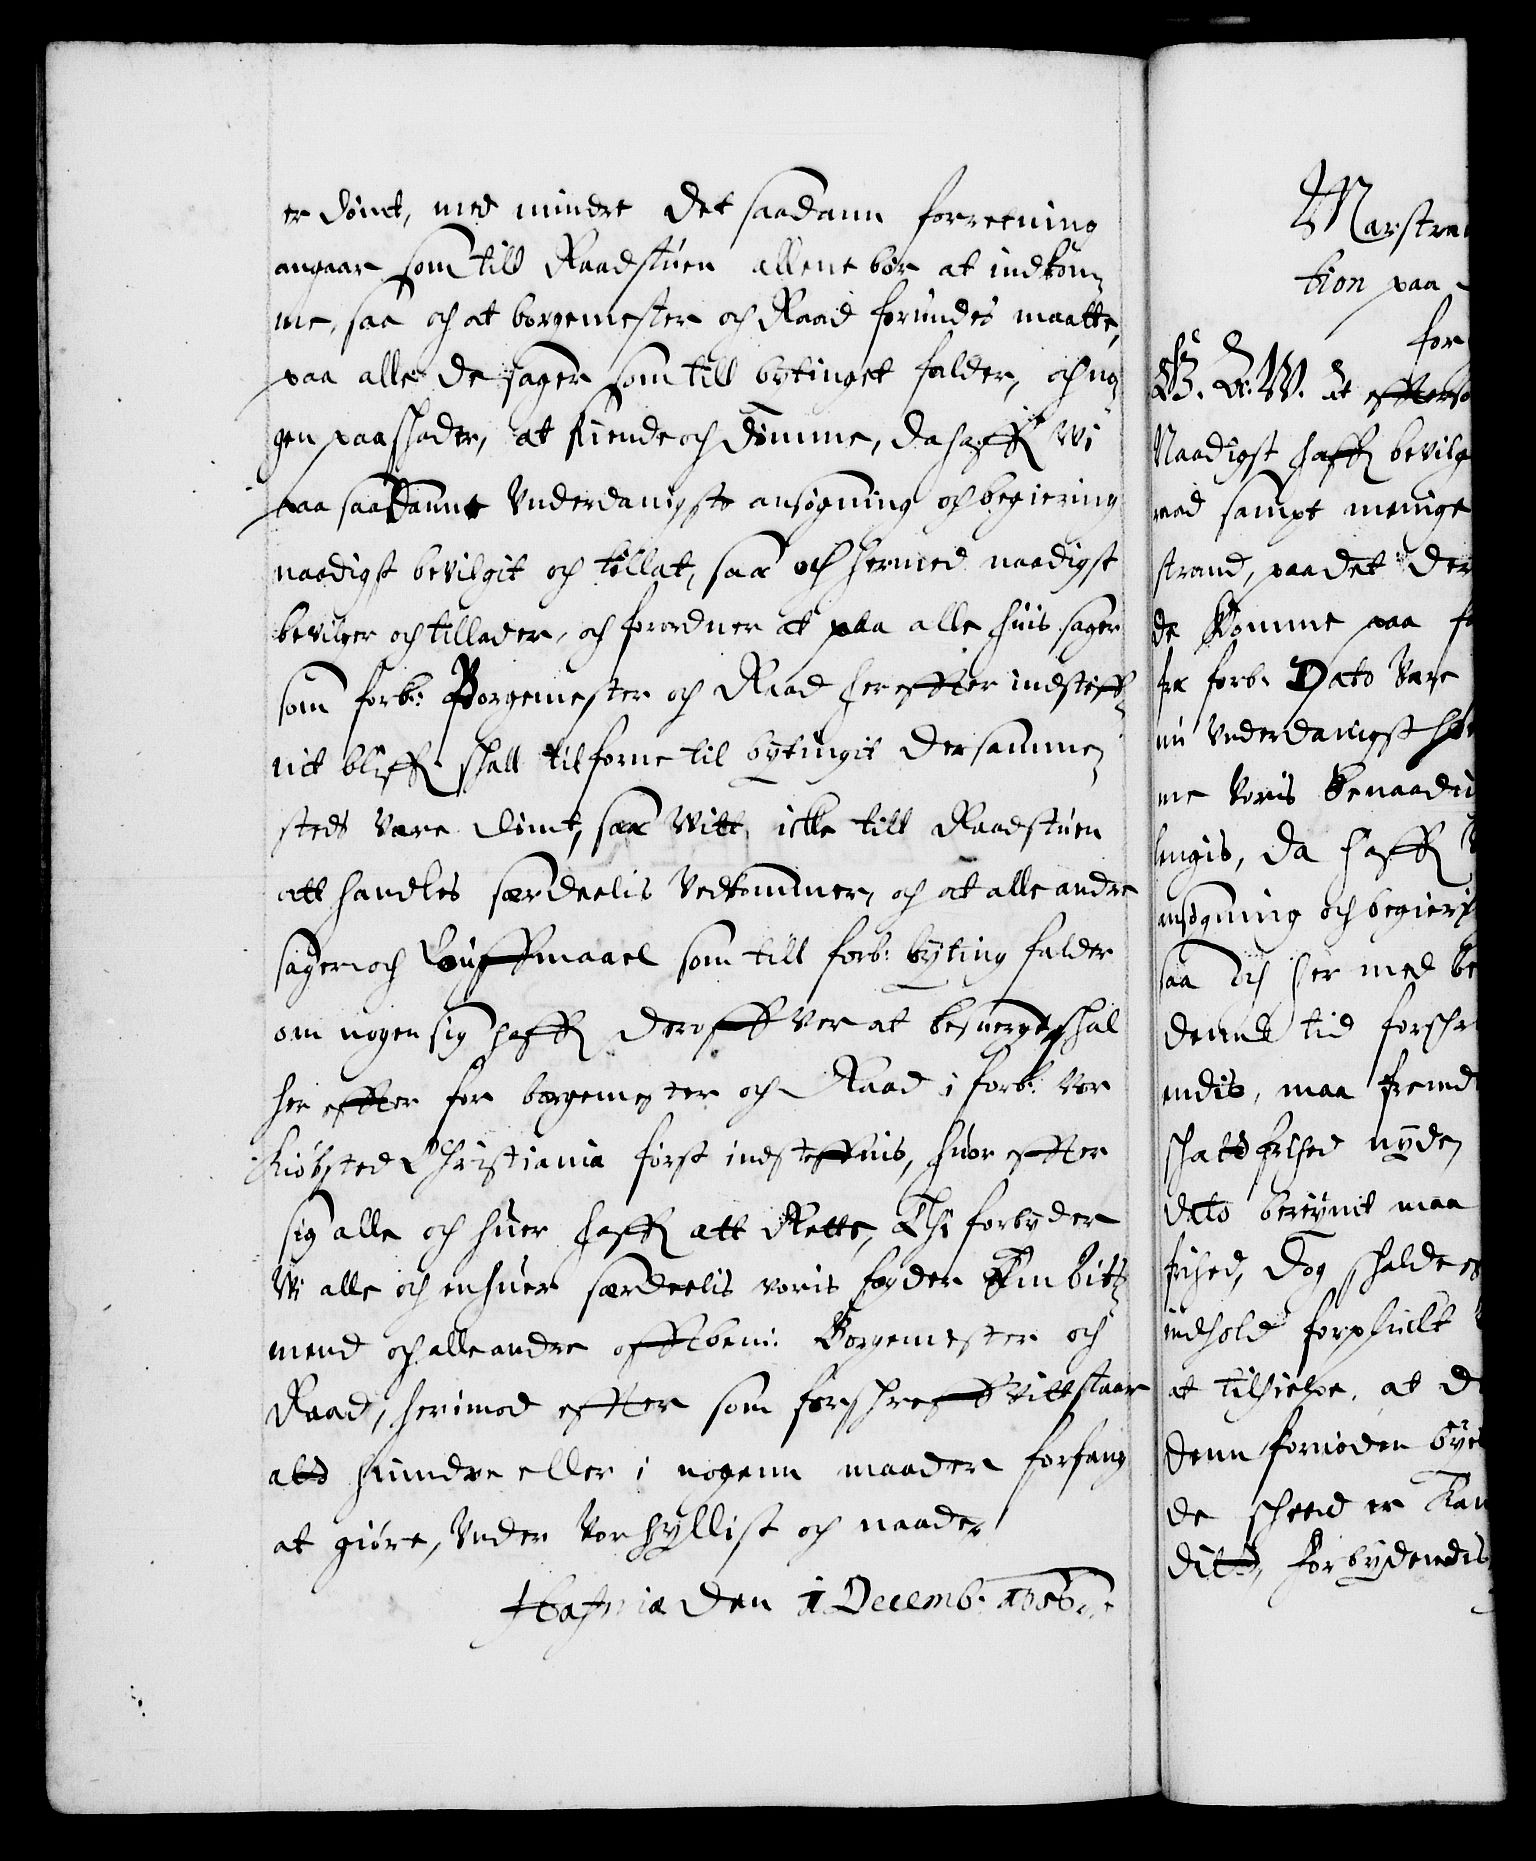 er dömt, med mindre det saadann forretning
angaar som till Raadstuen allene bör at indkom¬
me, saa och at borgemester och Raad forundes maatte,
paa alle de sager som till bytinget falder, och no¬
gen paaskader, at kiende och dömme, da haffr Wi
paa saadannt Vnderdanigste ansögning och begiering
naadigst bevilgit och tillat, saa och hermed naadigst
bevilger och tillader, och forordner at paa alle huis sager
som forb: Borgemester och Raad hereffter indsteff¬
nit bliffr skall tilforne til bytingit dersamme¬
steds være dömt, saa Witt, icke till Raadstuen
att handles særdeelis Vedkommer, och at alle andre
sager och Louffmaael som till forb: byting falder
om nogen sig haffr deroffver at besuerge, skal
her effter for borgemester och Raad i forb: vor
Kiöbsted Christiania först indsteffnis, huor effter
sig alle och huer haffr att Rette, Thi forbyder
Wi alle och enhuer særdeelis voris fogder Embitz¬
mend och alle andre offtben: Borgemester och
Raad, herimod effter som forschreffvitt staar
att hindre eller i nogenn maader forfang
at giöre, Vnder Vor hyllist och naade,
Hafniæ den 1 Decemb.
Marstra
tion paa
for
G. A. W. At efftersо
Naadigst haffr bevilg
raad sampt meinige
strand, paa det der
de Komme paa fo
fra forb. Dato Være
nu Vnderdanigst
me Voris Benaadi
lengis, da haffr
ansögning och begieri
saa och her med be
dennd tid forschr
endis, maa fremd
skatt frihed nyde,
dato bereignit maa
frihed, dog skulde
indhold forpslict
at tilhielpe, at d
denn fornöden bye
de skeed er Kan
ditt, Forbydendis